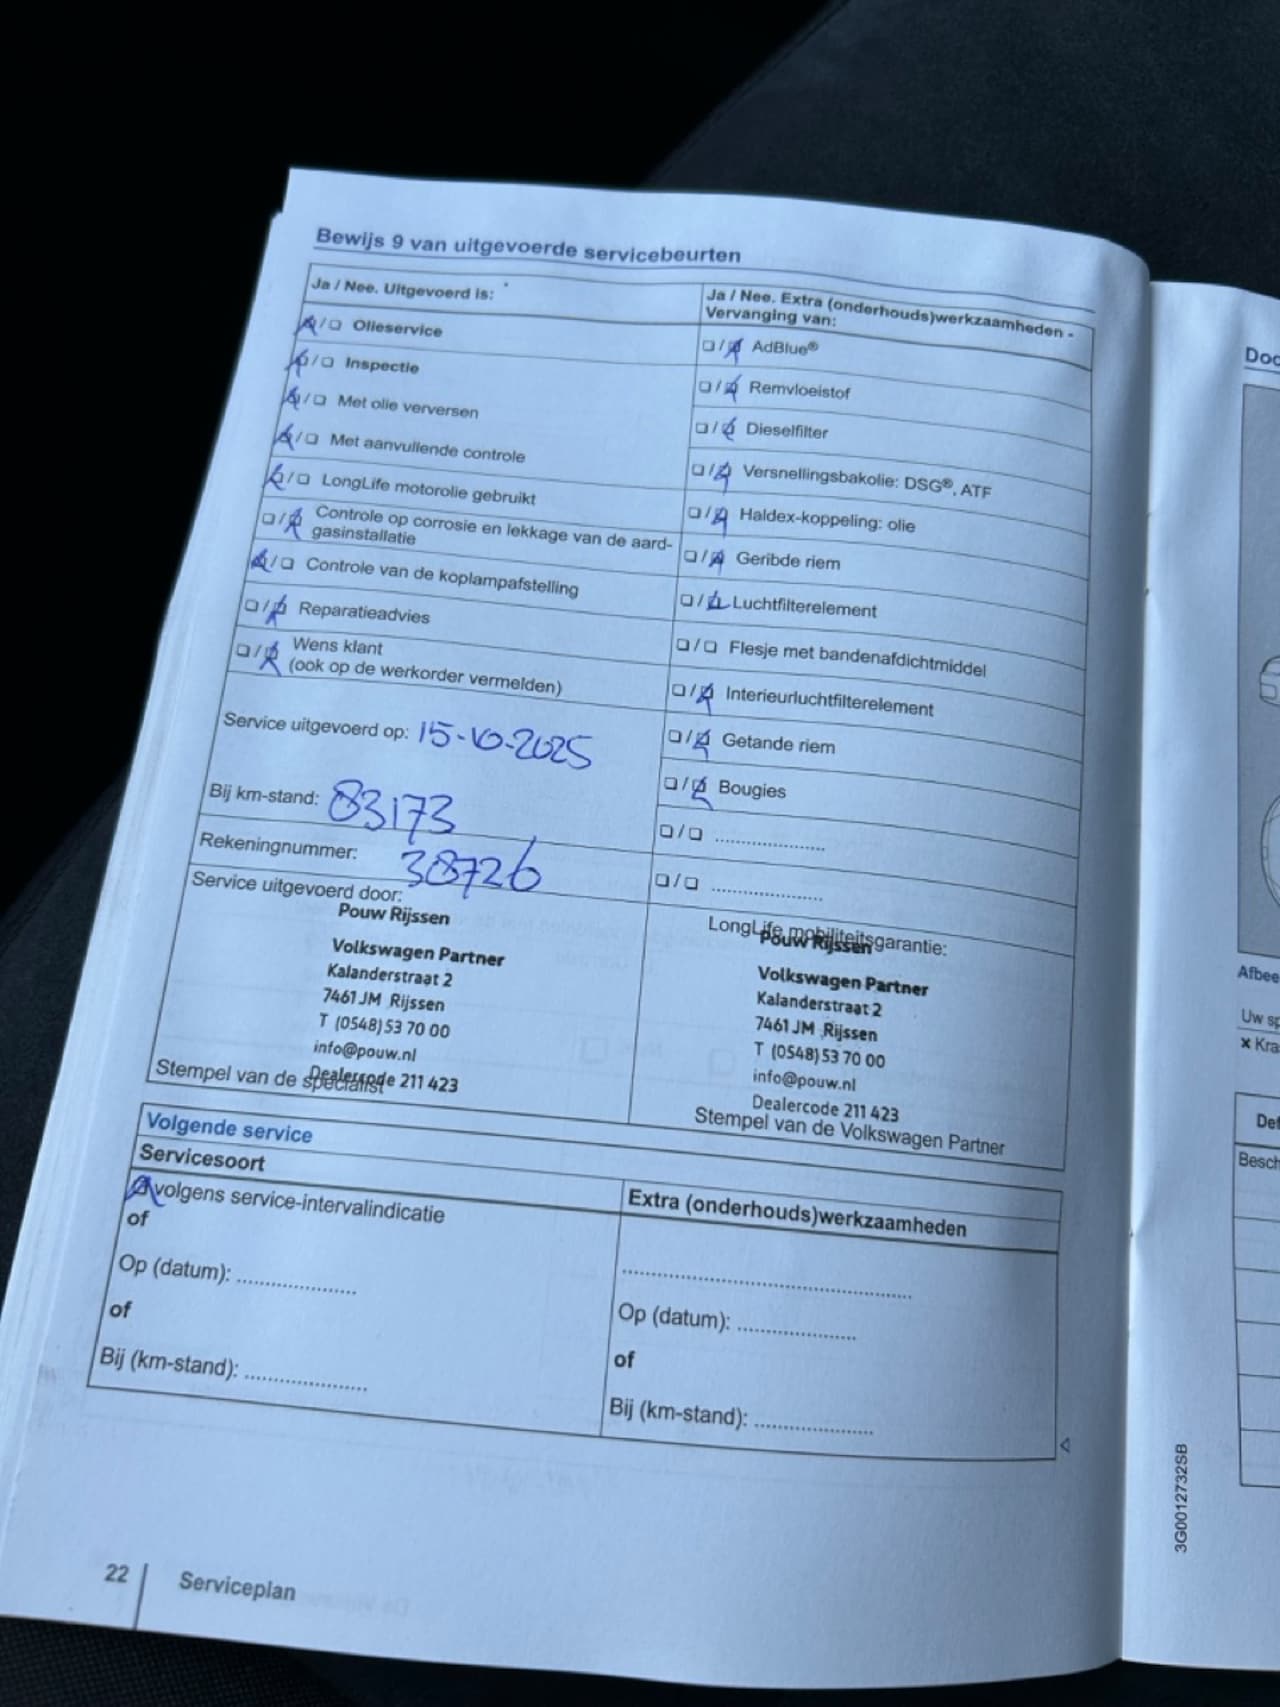 Bewijs 9 van uitgevoerde servicebeurten
Ja / Nee. Uitgevoerd is:
☒/☐ Olieservice
☒/☐ Inspectie
☒/☐ Met olie verversen
☒/☐ Met aanvullende controle
☒/☐ LongLife motorolie gebruikt
☐/☒ Controle op corrosie en lekkage van de aard-
gasinstallatie
☒/☐ Controle van de koplampafstelling
☐/☒ Reparatieadvies
☐/☒ Wens klant
(ook op de werkorder vermelden)
Service uitgevoerd op: 15-10-2025
Bij km-stand: 83173
Rekeningnummer: 38726
Service uitgevoerd door:
Pouw Rijssen
Volkswagen Partner
Kalanderstraat 2
7461 JM Rijssen
T (0548) 53 70 00
info@pouw.nl
Dealercode 211 423
Stempel van de specialist
Ja / Nee. Extra (onderhouds)werkzaamheden -
Vervanging van:
☐/☒ AdBlue®
☐/☒ Remvloeistof
☐/☒ Dieselfilter
☐/☒ Versnellingsbakolie: DSG®, ATF
☐/☒ Haldex-koppeling: olie
☐/☒ Geribde riem
☐/☒ Luchtfilterelement
☐/☐ Flesje met bandenafdichtmiddel
☐/☒ Interieurluchtfilterelement
☐/☒ Getande riem
☐/☒ Bougies
☐/☐ ....................
☐/☐ ....................
LongLife mobiliteitsgarantie:
Pouw Rijssen
Volkswagen Partner
Kalanderstraat 2
7461 JM Rijssen
T (0548) 53 70 00
info@pouw.nl
Dealercode 211 423
Stempel van de Volkswagen Partner
Volgende service
Servicesoort
☒ volgens service-intervalindicatie
of
Op (datum): ....................
of
Bij (km-stand): ....................
Extra (onderhouds)werkzaamheden
..................................................
Op (datum): ....................
of
Bij (km-stand): ....................
22
Serviceplan
3G0012732SB
Afbee
Uw sp
x Kra
Besch